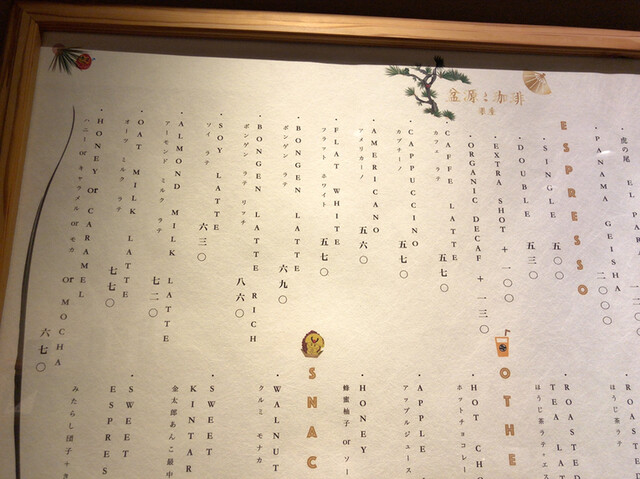 盆源と珈琲
虎の尾
・PANAMA GEISHA 二〇〇〇
ESPRESSO
・SINGLE 五〇〇
・DOUBLE 五三〇
・EXTRA SHOT + 一〇〇
・ORGANIC DECAF + 一三〇
・CAFFE LATTE 五七〇
カフェ ラテ
・CAPPUCCINO 五七〇
カプチーノ
・AMERICANO 五六〇
アメリカーノ
・FLAT WHITE 五七〇
フラット ホワイト
・BONGEN LATTE 六九〇
ボンゲン ラテ
・BONGEN LATTE RICH 八六〇
ボンゲン ラテ リッチ
・SOY LATTE 六三〇
ソイ ラテ
・ALMOND MILK LATTE 七二〇
アーモンド ミルク ラテ
・OAT MILK LATTE 七七〇
オーツ ミルク ラテ
・HONEY or CARAMEL or MOCHA 六七〇
ハニー or キャラメル or モカ
・ROASTED
ほうじ茶ラテ
・ROASTED
TEA LAT
ほうじ茶ラテ・エス
OTHE
・HOT CHO
ホットチョコレー
・APPLE
アップルジュース
・HONEY
蜂蜜柚子 or ソー
SNAC
・WALNUT
クルミ モナカ
・SWEET
KINTAR
金太郎あんこ最中
・SWEET
ESPRES
みたらし団子